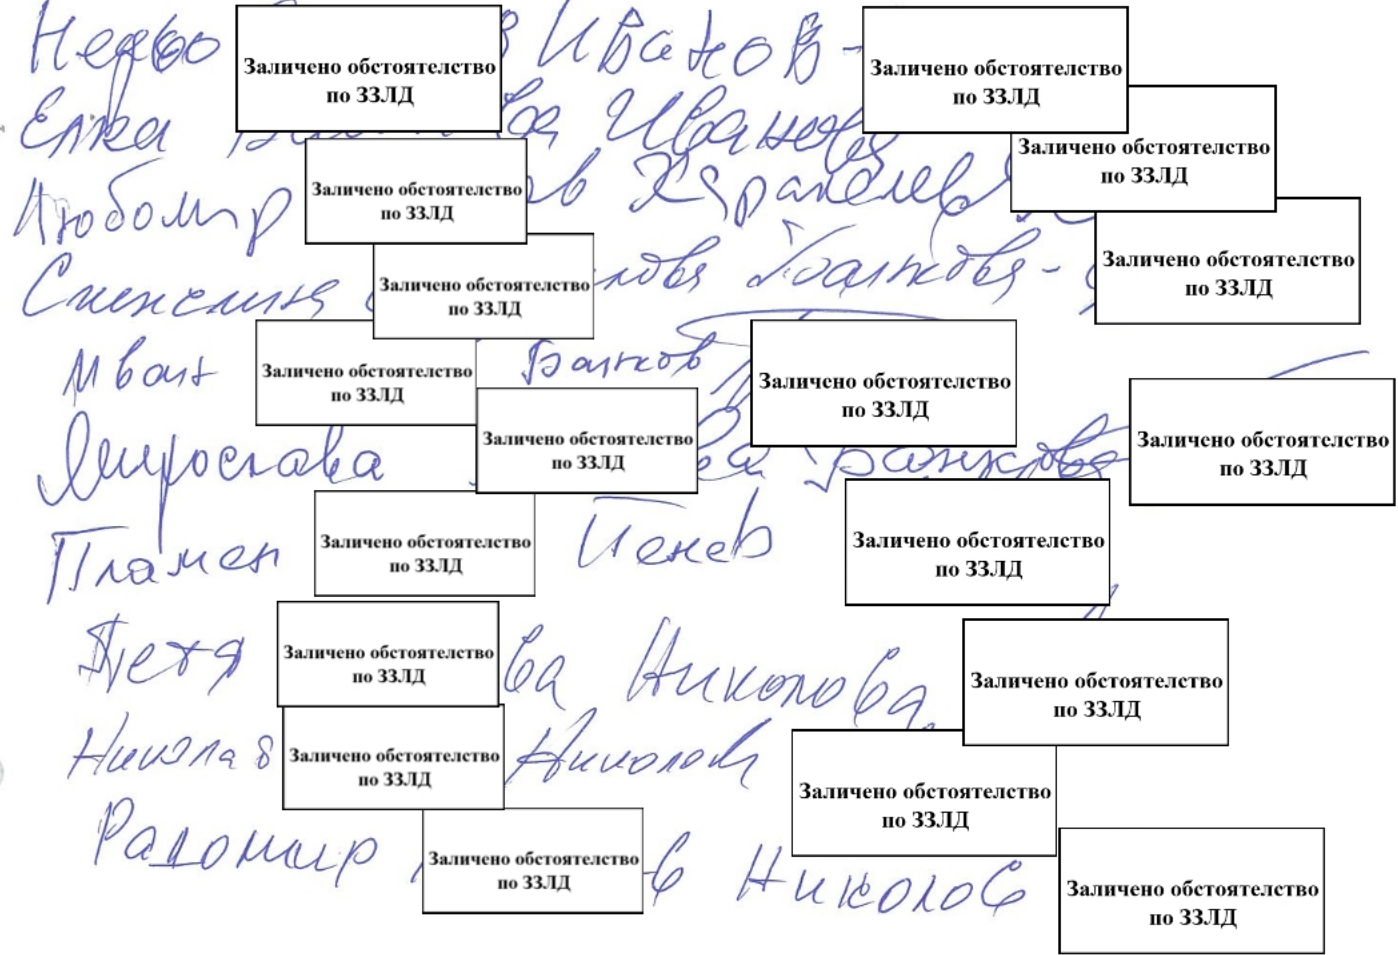 Заличено обстоятелство по ЗЗЛД Иванов - Заличено обстоятелство по ЗЗЛД
Елка Иванова Заличено обстоятелство по ЗЗЛД
Любомир Заличено обстоятелство по ЗЗЛД ов
Заличено обстоятелство по ЗЗЛД Заличено обстоятелство по ЗЗЛД
Иван Заличено обстоятелство по ЗЗЛД Банков Заличено обстоятелство по ЗЗЛД
Мирослава Заличено обстоятелство по ЗЗЛД ва Банкова Заличено обстоятелство по ЗЗЛД
Пламен Заличено обстоятелство по ЗЗЛД Пенев Заличено обстоятелство по ЗЗЛД
Петя Заличено обстоятелство по ЗЗЛД ва Николова Заличено обстоятелство по ЗЗЛД
Николай Заличено обстоятелство по ЗЗЛД Николов Заличено обстоятелство по ЗЗЛД
Радомир Заличено обстоятелство по ЗЗЛД в Николов Заличено обстоятелство по ЗЗЛД